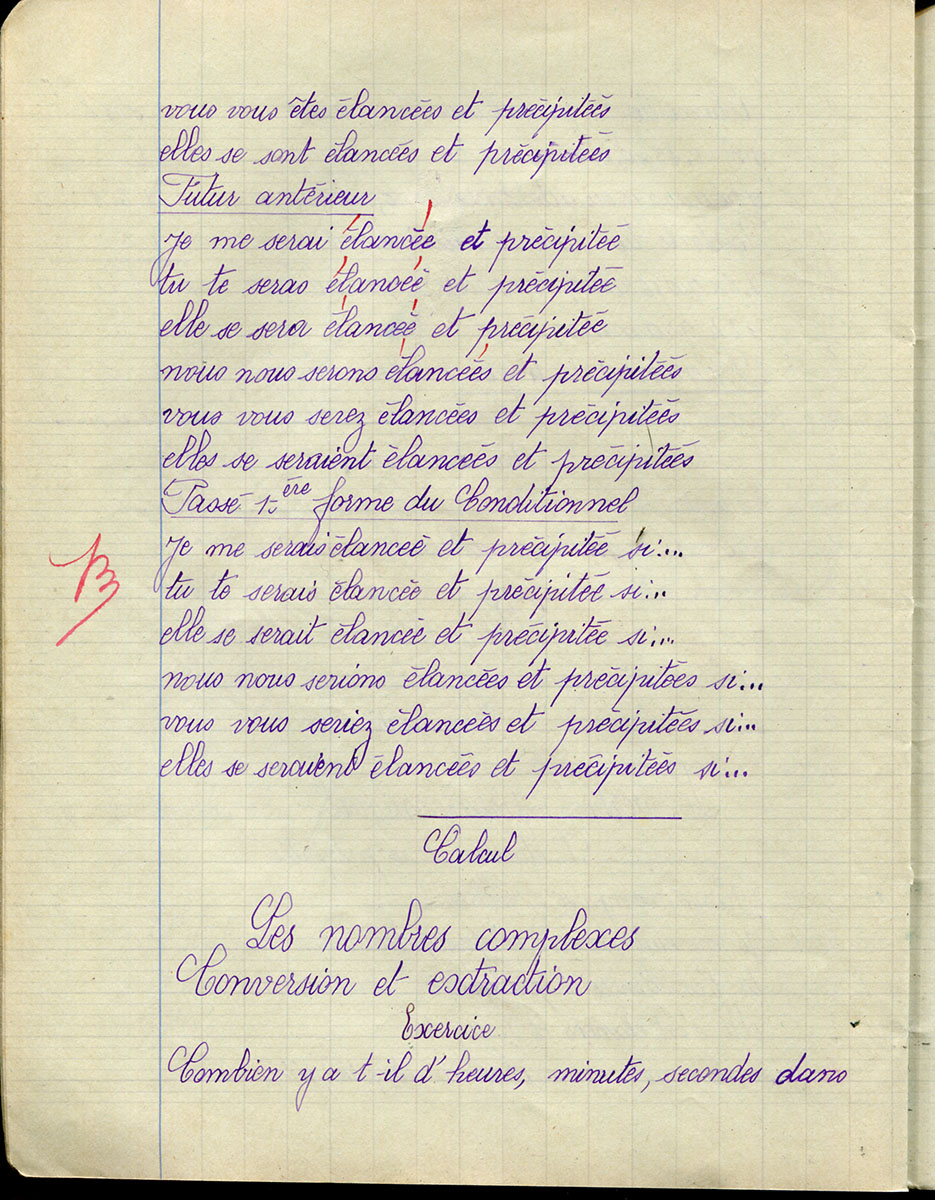 vous vous êtes élancées et précipitées
elles se sont élancées et précipitées
Futur antérieur
Je me serai élancée et précipitée
tu te seras élancée et précipitée
elle se sera élancée et précipitée
nous nous serons élancées et précipitées
vous vous serez élancées et précipitées
elles se seraient élancées et précipitées
Passé 1ère forme du Conditionnel
Je me serais élancée et précipitée si...
tu te serais élancée et précipitée si...
elle se serait élancée et précipitée si...
nous nous serions élancées et précipitées si...
vous vous seriez élancées et précipitées si...
elles se seraient élancées et précipitées si...
B
Calcul
Les nombres complexes
Conversion et extraction
Exercice
Combien y a t-il d'heures, minutes, secondes dans